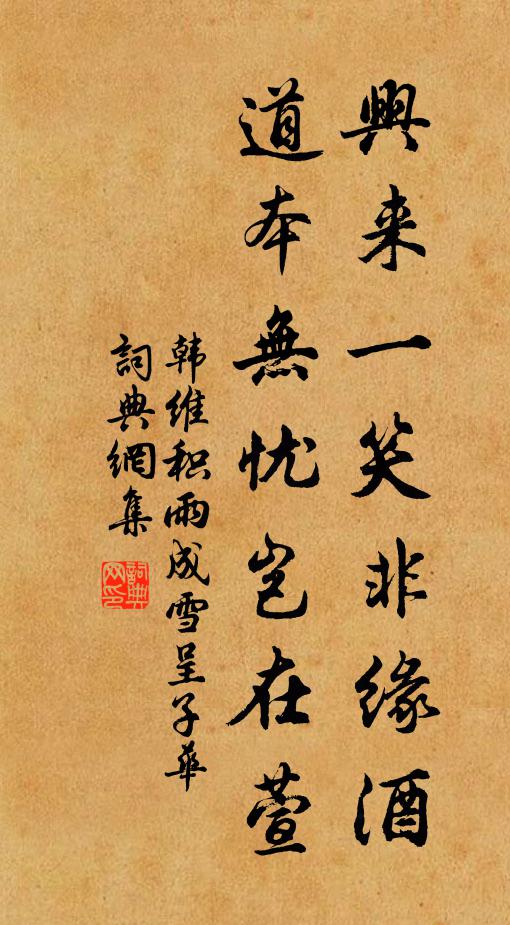 興来一笑非緣酒
道本無忧岂在萱
韩维积雨成雪呈子華
詞典網集
詞典网印